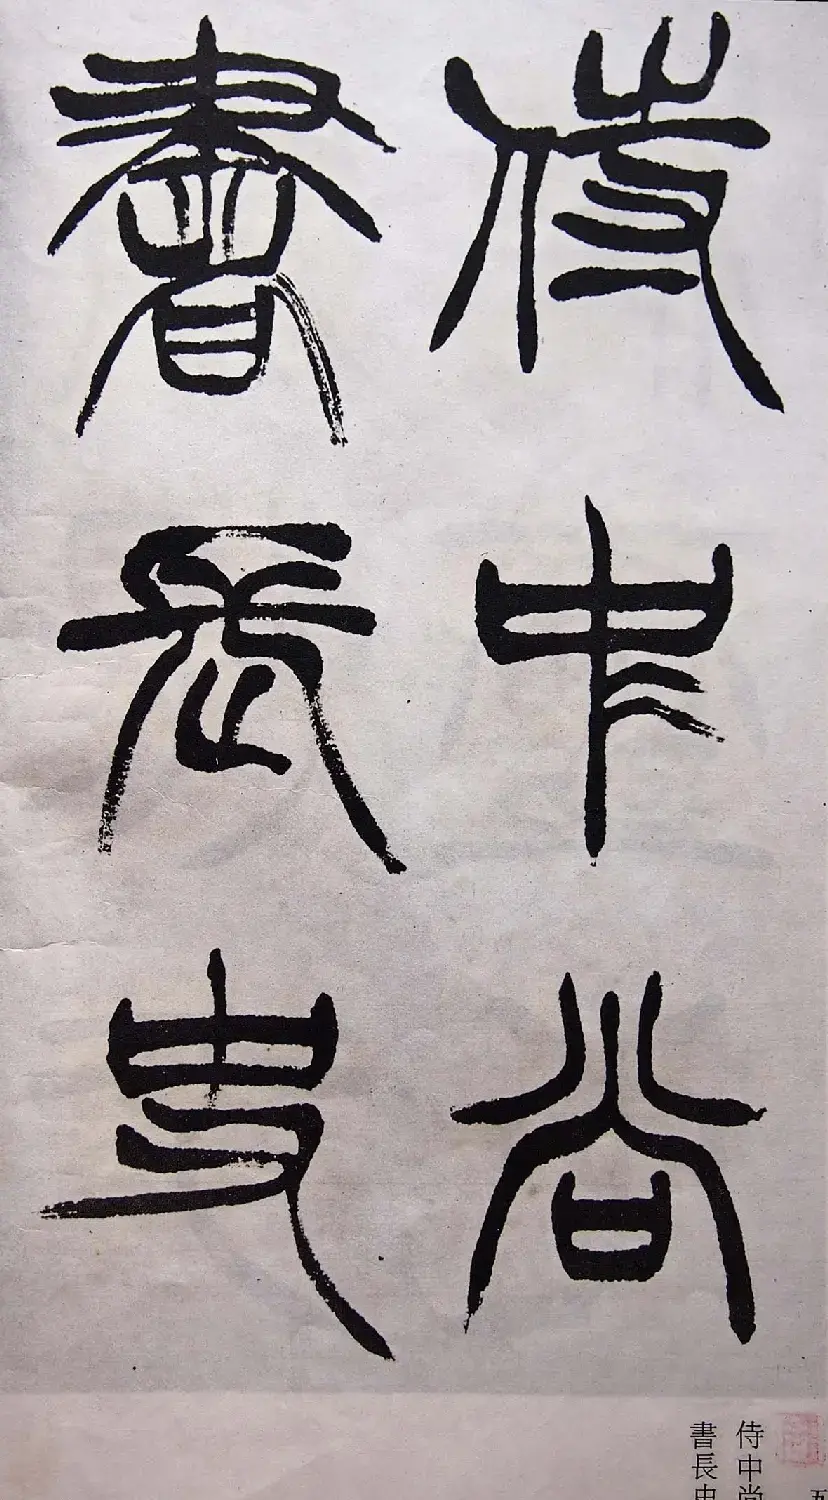 侍中尚
書長史
侍中尚
書長史
五